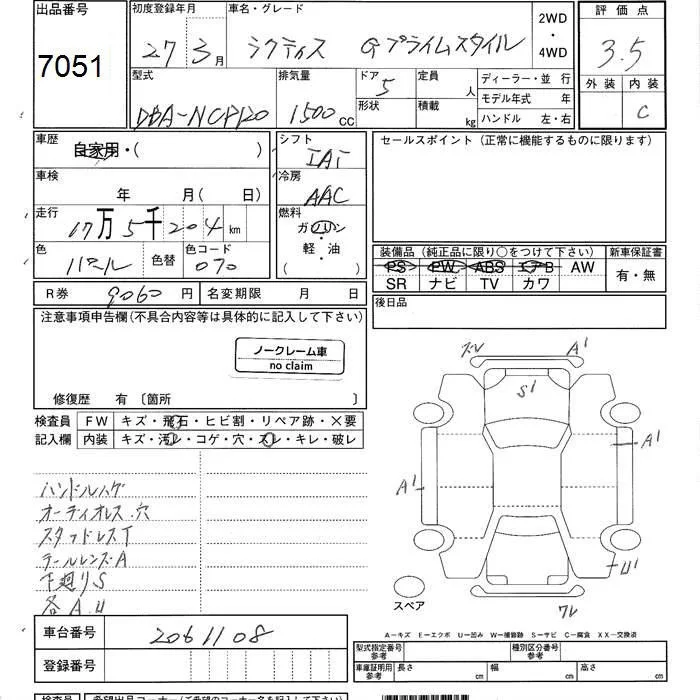 出品番号 7051
初度登録年月 27 3月
車名・グレード ラクティス Gプライムスタイル
2WD・4WD
評価点 3.5
外装 内装 C
型式 DBA-NCP120
排気量 1500cc
ドア 5
形状
定員 人
積載 kg
ディーラー・並行
モデル年式 年
ハンドル 左・右
車歴 自家用・( )
シフト IAT
セールスポイント(正常に機能するものに限ります)
車検 年 月(日)
冷房 AAC
走行 17万5千204km
燃料 ガソリン・軽・油 ( )
色 パール 色替 色コード 070
装備品(純正品に限り○をつけて下さい)
新車保証書
PS PW ABS エアB AW
SR ナビ TV カワ
有・無
R券 9060円 名変期限 月 日
後日品
注意事項申告欄(不具合内容等は具体的に記入して下さい)
ノークレーム車
no claim
修復歴 有〔箇所 〕
検査員記入欄
FW キズ・飛石・ヒビ割・リペア跡・×要
内装 キズ・汚レ・コゲ・穴・スレ・キレ・破レ
ハンドルハゲ
オーディオレス.穴
スタッドレスT
テールレンズA
下廻りS
各A.U
ズレ A1
S1
A1
A1
U1
ワレ
スペア
A-キズ E-エクボ U-凹み W-補修跡 S-サビ C-腐食 XX-交換済
車台番号 2061108
登録番号
型式指定番号 参考
種別区分番号 参考
車庫証明用 参考
長さ cm 幅 cm 高さ cm
検査員
希望出品コーナー(ご希望のコーナー名を記入して下さい)